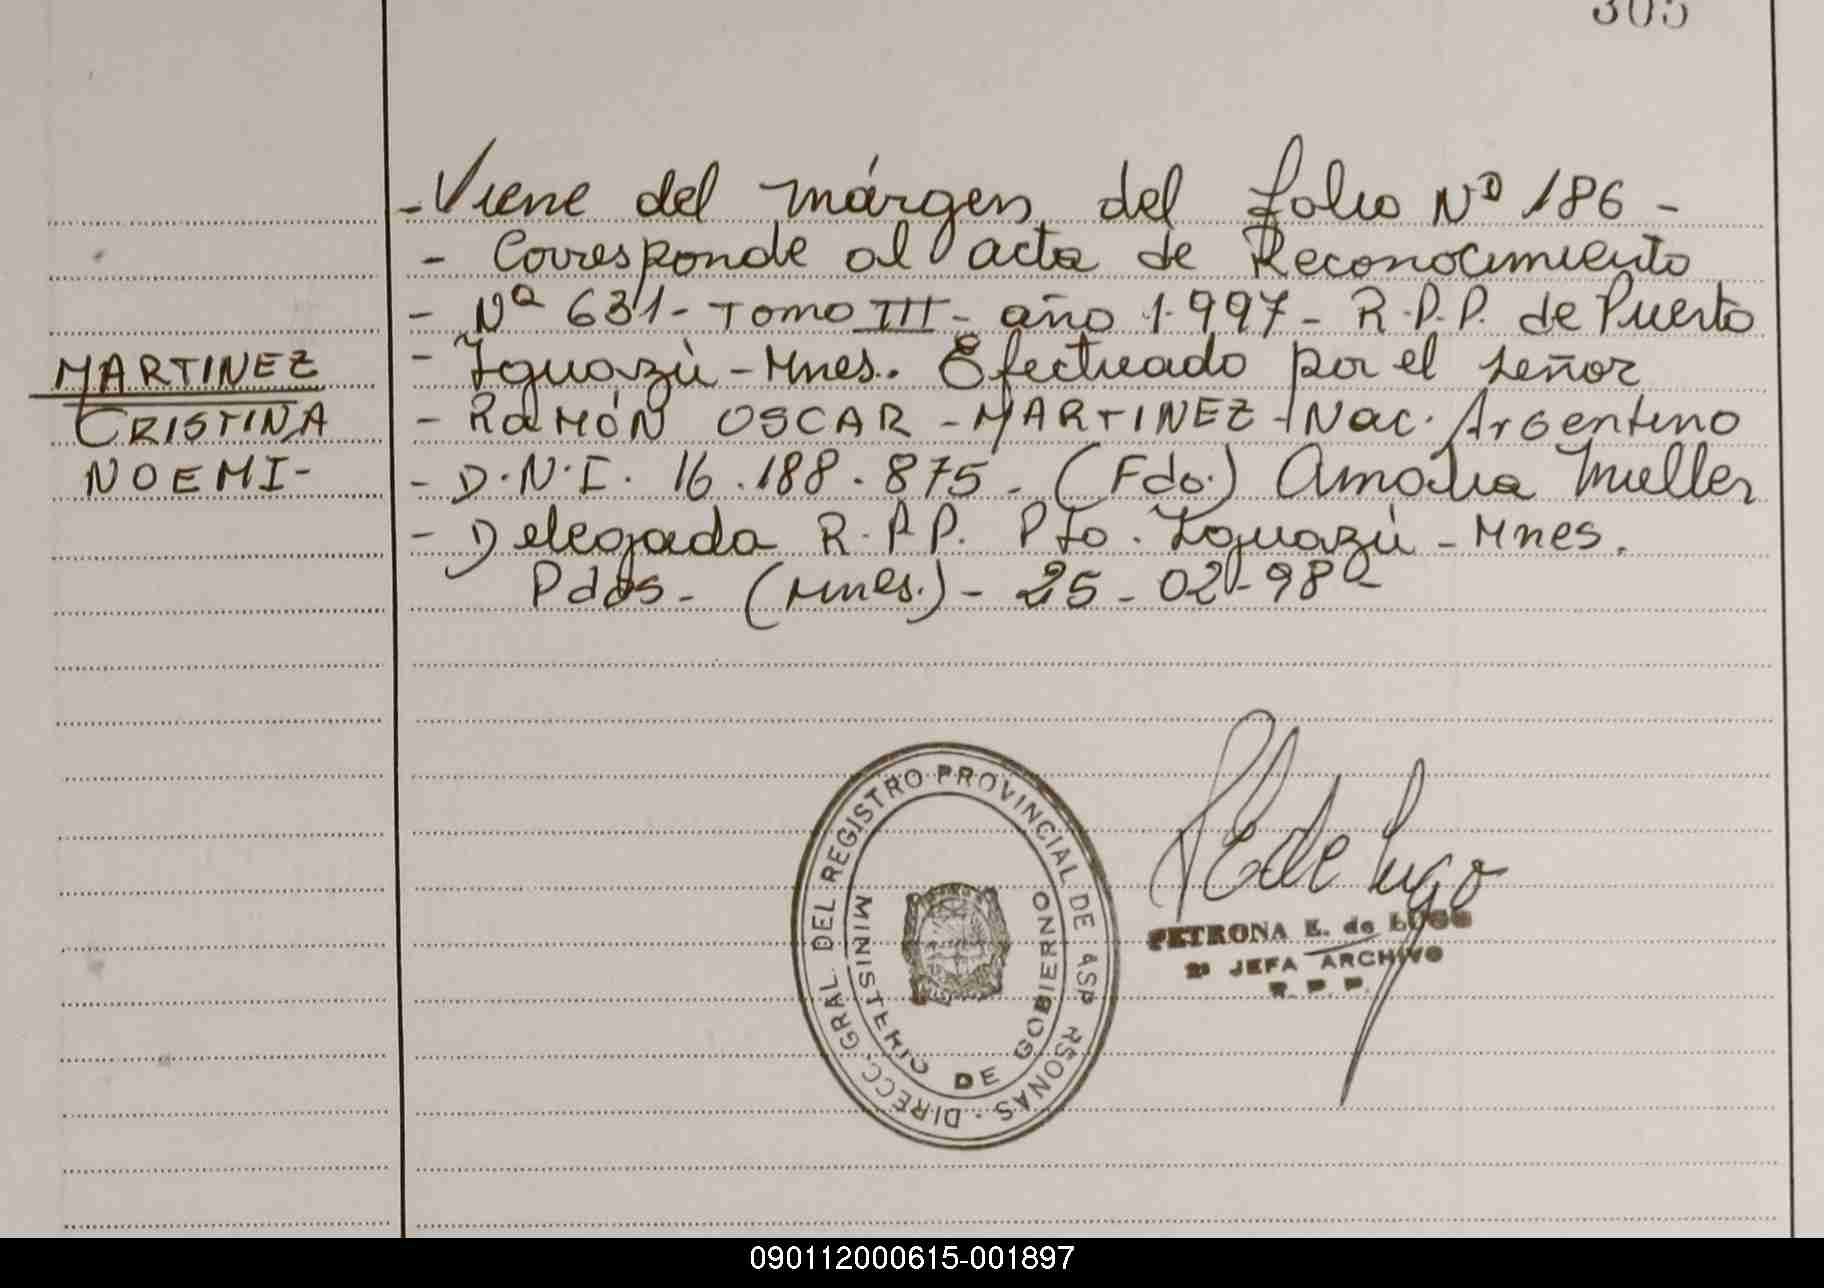 305
-Viene del márgen del folio Nº 186 -
- Corresponde al acta de Reconocimiento
- Nº 631 - Tomo III - año 1.997 - R.P.P. de Puerto
- Iguazú - Mnes. Efectuado por el señor
- RAMÓN OSCAR - MARTINEZ - Nac. Argentino
- D.N.I. 16.188.875 - (Fdo.) Amalia Muller
- Delegada R.P.P. Pto. Iguazú - Mnes.
Pdas - (Mnes.) - 25 - 02 - 98
MARTINEZ
CRISTINA
NOEMI-
DIRECC. GRAL DEL REGISTRO PROVINCIAL DE RSONAS
MINISTERIO DE GOBIERNO
PE de Lugo
PETRONA E. de LUGO
2ª JEFA ARCHIVO
R. P. P.
090112000615-001897